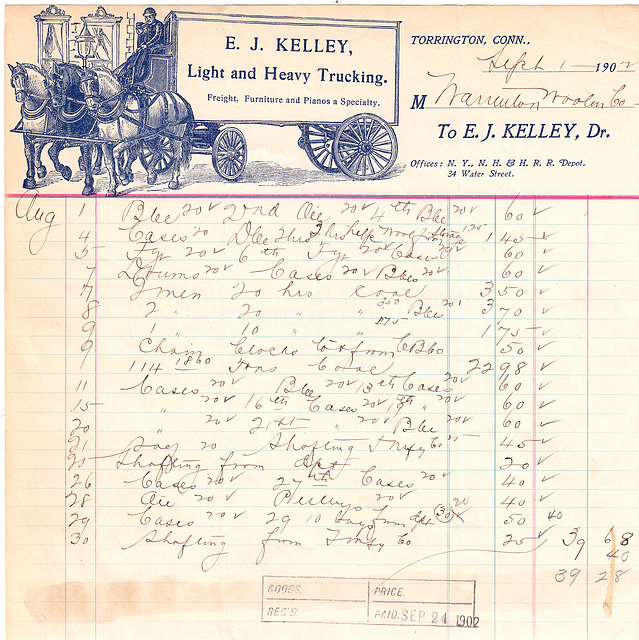 E. J. KELLEY,
Light and Heavy Trucking.
Freight, Furniture and Pianos a Specialty.
TORRINGTON, CONN.,
Sept 1 1902
M Warrenton Woolen Co
To E. J. KELLEY, Dr.
Offices: N. Y., N. H. & H. R. R. Depot.
34 Water Street.
Aug 1 Bbe 20 2nd Oil 20 4th Bbe 20 60
4 Cases 20 2 hrs help Wool from Storage 1.25 1 45
5 20 6th 20 Cases 20 60
7 Drums 20 Cases 20 Bbls 20 60
7 2 men 20 hrs coal 3 50
8 2 " 20 " " 350 Bbls 20 3 70
9 1 " 10 " " 175 1 75
9 Chain Blocks to & from CBCo 50
114 1860 Tons Coal 22 98
11 Cases 20 Bbe 20 13th Cases 20 60
15 " 20 16th Cases 20 19th " 20 60
20 " 20 21st " 20 Bbe 20 60
21 20 Shafting Co 25 45
25 Shafting from dpt 20
26 Cases 20 27th Cases 20 40
28 Oil 20 Pulleys 20 40
29 Cases 20 29 10 from dpt 30 20 50 40
30 Shafting from Co 25 39 68
40
39 28
GOODS PRICE
REC'D. PAID. SEP 24 1902